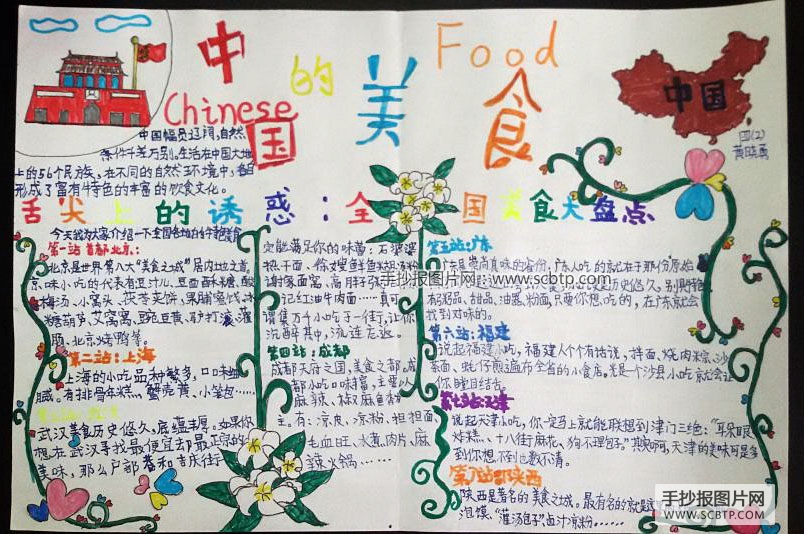 中国的美食
Chinese
Food
中国
四(2)
中国幅员辽阔,自然
条件千差万别。生活在中国大地
上的56个民族,在不同的自然环境中,各自
形成了富有特色的丰富的饮食文化。
舌尖上的诱惑:全国美食大盘点
第一站 首都北京:
北京是世界第八大"美食之城"居内地之首。
京味小吃的代表有豆汁儿、豆面酥糖、酸
梅汤、小窝头、茯苓夹饼、果脯蜜饯、冰
糖葫芦、艾窝窝、豌豆黄、驴打滚、灌
肠、北京烤鸭等。
第二站:上海
上海的小吃品种繁多,口味
有排骨年糕、蟹壳黄、小笼包……
武汉美食历史悠久,底蕴丰厚。如果你
想在武汉寻找最便宜却最正宗的
美味,那么户部巷和吉庆街
定能满足你的味蕾:石婆婆
热干面、徐嫂鲜鱼糊汤粉
谢家面窝、
记红油牛肉面……真可
谓集万千小吃于一街,让你
沉醉其中,流连忘返。
第四站:成都
成都天府之国,美食之都,成
都小吃口味丰富,主要以
麻辣、
主。有:凉皮、凉粉、担担面
毛血旺、水煮肉片、麻
辣火锅……
第五站:广东
广东是崇尚真味的省份,广东人吃的就已在于那份原始
历史悠久,
甜品、油器、粉面,只要你想吃的,在广东就会
找到对味的。
第六站:福建
说起福建小吃,福建人个个有话说,拌面、烧肉粽、沙
茶面、蚝仔煎遍布全省的小食店。光是一个沙县小吃就会让
你瞠目结舌。
第七站:天津
说起天津小吃,你一定马上就能联想到津门三绝:"耳朵眼
炸糕、十八街麻花、狗不理包子"。其实啊,天津的美味可是多
到你想不到也数不清。
第八站:陕西
陕西是著名的美食之城。最有名的就是
泡馍、"灌汤包子"、卤汁凉粉……
手抄报图片网 www.scbtp.com
手抄报图片网
WWW.SCBTP.COM